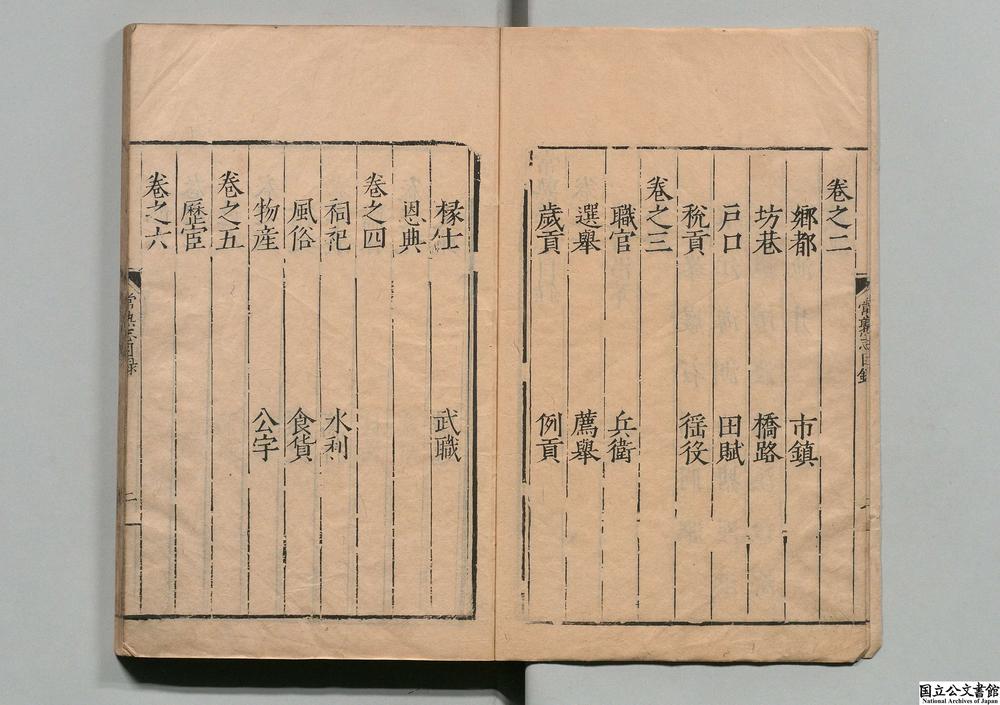 卷之二
鄉都 市鎮
坊巷 橋路
戶口 田賦
稅貢 徭役
卷之三
職官 兵衛
選舉 薦舉
歲貢 例貢
常熟志目錄
一
掾仕 武職
恩典
卷之四
祠祀 水利
風俗 食貨
物産 公宇
卷之五
歷宦
卷之六
常熟志目錄
二
国立公文書館
National Archives of Japan